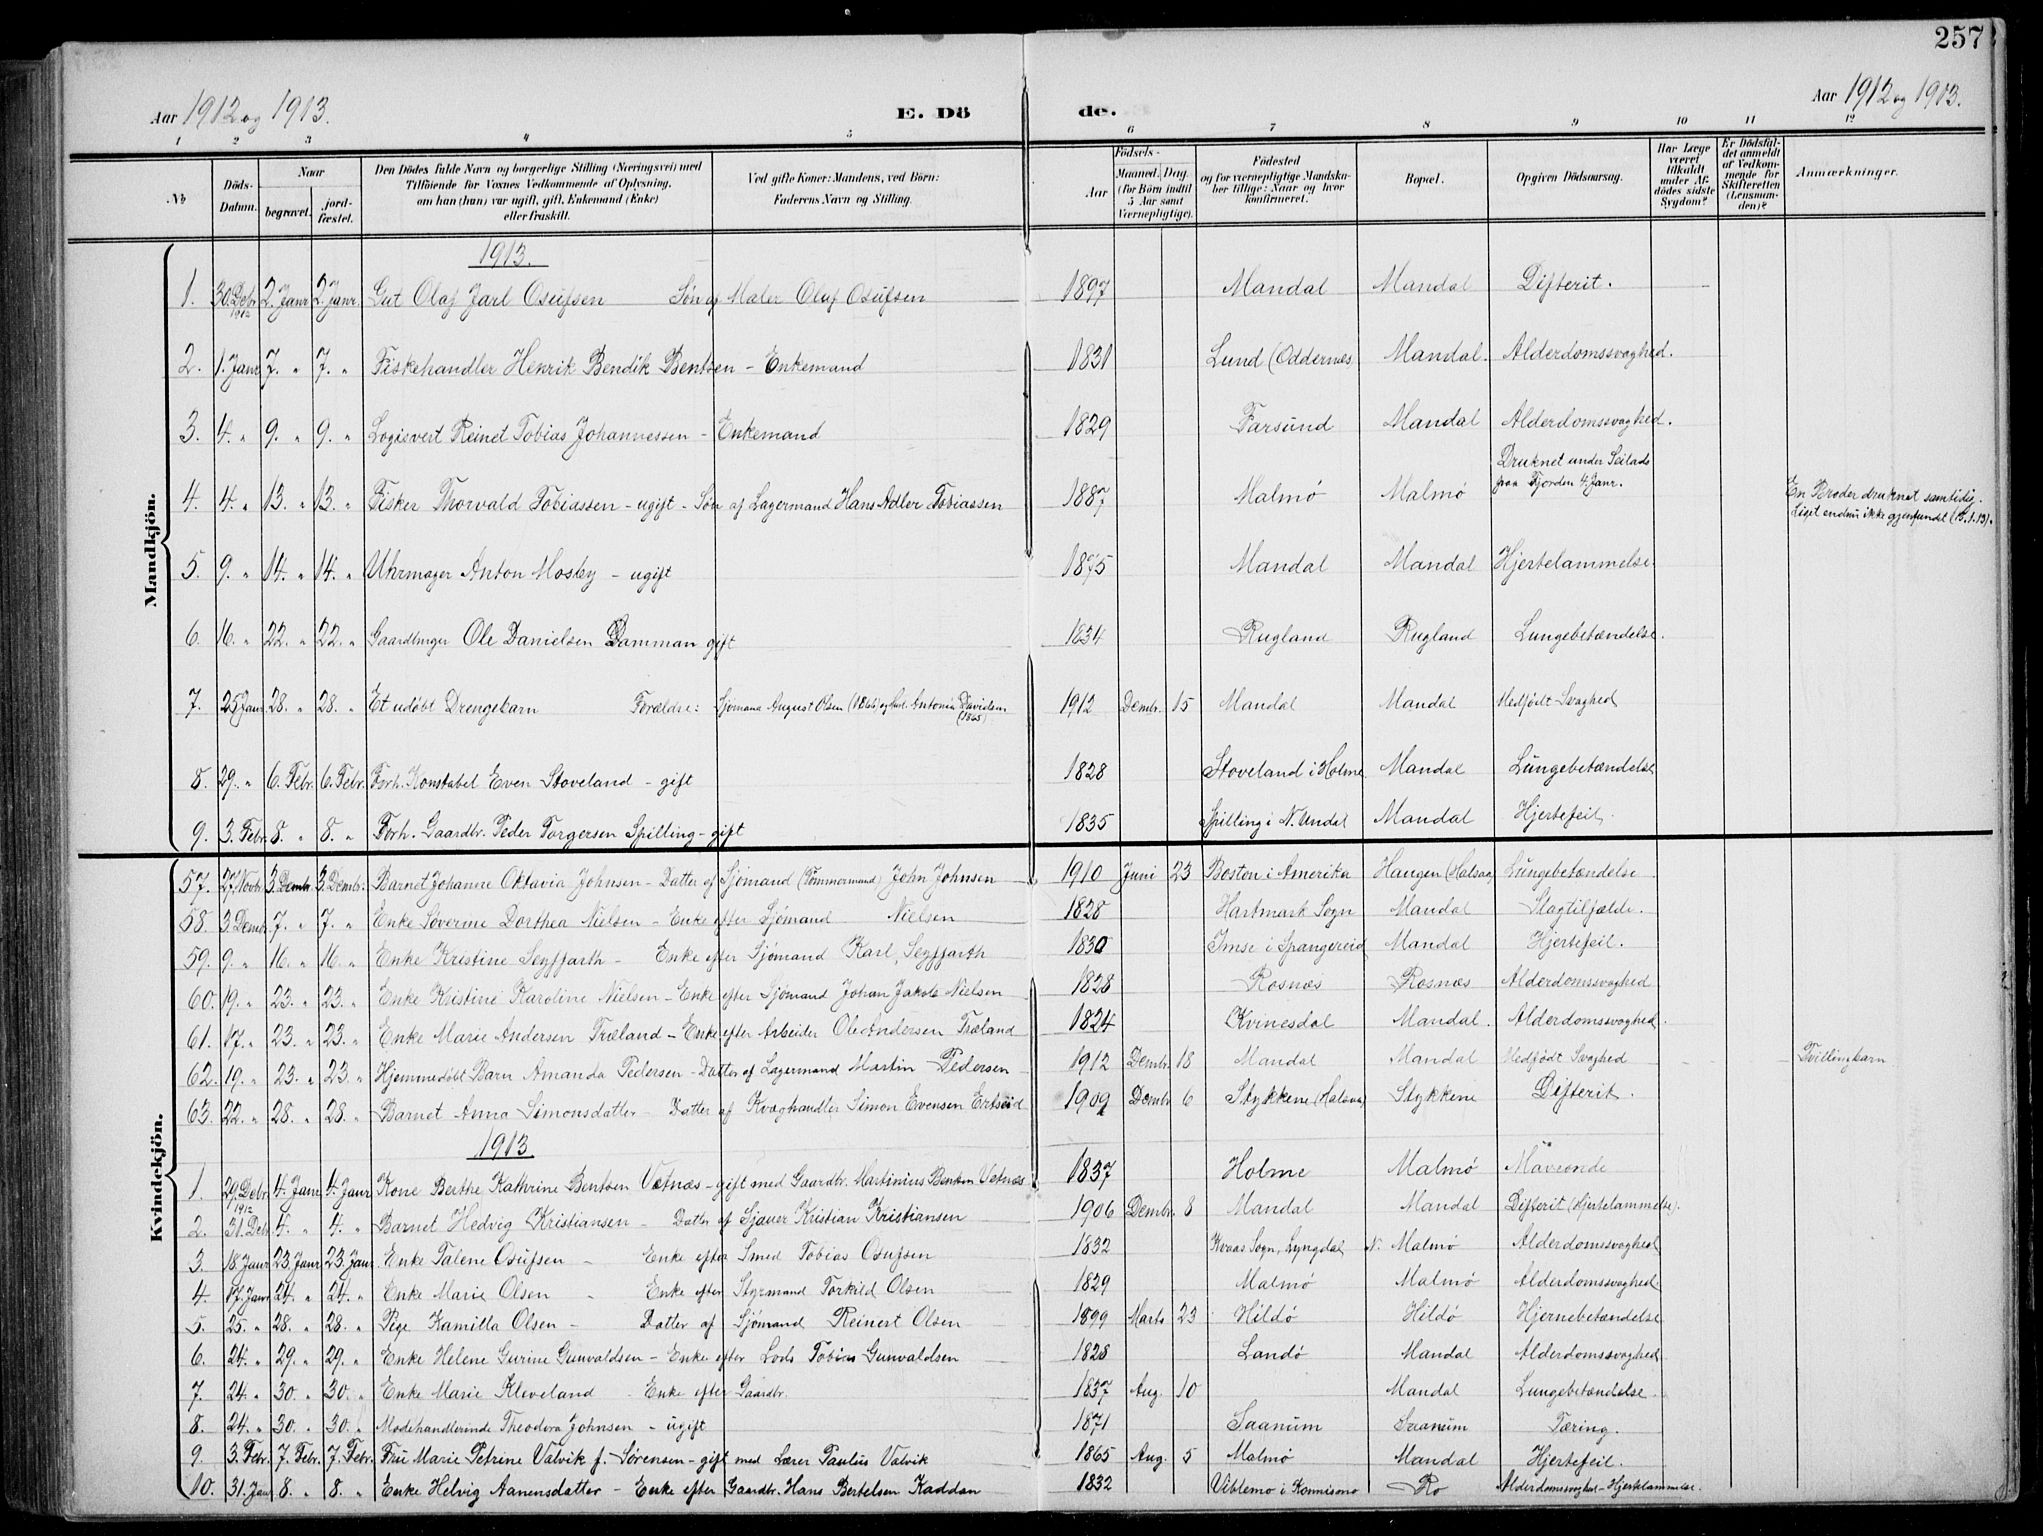 257
Aar 1912 og 1913.
E. Dö de.
Aar 1912 og 1913.
1 2 3 4 5 6 7 8 9 10 11 12
№ | Döds-Datum. | Naar begravet. | jord-fæstet. | Den Dödes fulde Navn og borgerlige Stilling (Næringsvei) med Tilföiende for Voxnes Vedkommende af Oplysning, om han (hun) var ugift, gift, Enkemand (Enke) eller fraskilt. | Ved gifte Koner: Mandens, ved Börn: Faderens Navn og Stilling. | Födsels- Aar | Maaned. Dag. (for Börn indtil 5 Aar samt Værnepligtige). | Födested og for værnepligtige Mandskaber tillige: Naar og hvor konfirmeret. | Bopæl. | Opgiven Dödsaarsag. | Har Læge været tilkaldt under Afdödes sidste Sygdom? | Er Dödsfaldet anmeldt af Vedkommende for Skifteretten (Lensmanden)? | Anmærkninger.
Mandkjön.
1913.
1. 30. Debr. 1912 2. Janr 2. Janr. Gut Olaf Jarl Osufsen Søn af Maler Oluf Osufsen 1897 Mandal Mandal Difterit.
2. 1. Janr 7. " 7. " Fiskehandler Henrik Bendik Bentsen - Enkemand 1831 Lund (Oddernes Mandal. Alderdomssvaghed.
3. 4. " 9. " 9. " Logisvert Reinet Tobias Johannessen - Enkemand 1829 Farsund Mandal Alderdomssvaghed.
4. 4. " 13. " 13. " Fisker Thorvald Tobiassen - ugift - Søn af Lagermand Hans Adler Tobiassen 1887 Malmø Malmø Druknet under Seilads paa Fjorden 4 Janr. En Broder druknet samtidig. Liget endnu ikke gjenfundet (13.1.13).
5. 9. " 14. " 14. " Uhrmager Anton Mosby - ugift 1875 Mandal Mandal Hjertelammelse.
6. 16. " 22. " 22. " Gaardbruger Ole Danielsen Damman gift 1834 Rugland Rugland Lungebetændelse.
7. 25 Janr 28. " 28. " Et udøbt Drengebarn Forældre: Sjømand August Olsen (1866) og Antonia Davidsen (1865) 1912 Dembr. 15 Mandal Mandal Medfødt Svaghed
8. 29. " 6. Febr. 6. Febr. Forh. Konstabel Even Stoveland - gift 1828 Stoveland i Holme Mandal Lungebetændelse
9. 3. Febr. 8. " 8. " Forh. Gaardbr. Peder Torgersen Spilling - gift 1835 Spilling i N. Undal Mandal Hjertefeil.
Kvindekjön.
57. 27. Novbr. 3. Dembr. 3. Dembr. Barnet Johanne Oktavia Johnsen - Datter af Sjømand (Tømmermand) John Johnsen 1910 Juni 23 Boston i Amerika Haugen (Halsaa) Lungebetændelse.
58. 3. Dembr. 7. " 7. " Enke Severine Dorthea Nielsen - Enke efter Sjømand Nielsen 1828 Hartmark Sogn Mandal Slagtilfælde.
59. 9. " 16. " 16. " Enke Kristine Seyffarth - Enke efter Sjømand Karl Seyffarth 1830 Imse i Spangereid Mandal Hjertefeil.
60. 19. " 23. " 23. " Enke Kristine Karoline Nielsen - Enke efter Sjømand Johan Jakob Nielsen 1828 Rosnæs Rosnæs Alderdomssvaghed
61. 17. " 23. " 23. " Enke Marie Andersen Træland - Enke efter Arbeider Ole Andersen Træland 1824 Kvinesdal Mandal. Alderdomssvaghed.
62. 19. " 23. " 23. " Hjemmedøbt Barn Amanda Pedersen - Datter af Lagermand Martin Pedersen 1912 Dembr. 18 Mandal Mandal Medfødt Svaghed Tvillingbarn
63. 22. " 28. " 28. " Barnet Anna Simonsdatter - Datter af Kvæghandler Simon Evensen Ertseid 1909 Dembr 6 Stykkene (Halsaa) Stykkene Difterit.
1913
1. 29. Debr. 1912 4. Janr 4. Janr Kone Berthe Kathrine Bentsen Vetnæs - gift med Gaardbr. Martinius Bentsen Vetnæs 1837 Holme Malmø Maveonde
2. 31. Debr 4. " 4. " Barnet Hedvig Kristiansen - Datter af Sjauer Kristian Kristiansen 1906 Dembr. 8 Mandal Mandal Difterit (Hjertelammelse).
3. 18. Janr 23. Janr 23. Janr. Enke Talene Osufsen - Enke efter Smed Tobias Osufsen 1832 Kvaas Sogn, Lyngdal N. Malmø Alderdomssvaghed
4. 17. Janr 24. " 24. " Enke Marie Olsen - Enke efter Styrmand Torkild Olsen 1829 Malmø Malmø Alderdomssvaghed.
5. 25. " 28. " 28. " Pige Kamilla Olsen - Datter af Sjømand Reinert Olsen 1899 Marts 23 Hildø Hildø Hjernebetændelse
6. 24. " 29. " 29. " Enke Helene Gurine Gunvaldsen - Enke efter Lods Tobias Gunvaldsen 1828 Landø Mandal Alderdomssvaghed.
7. 24. " 30. " 30. " Enke Marie Kleveland - Enke efter Gaardbr. 1837 Aug. 10 Mandal Lungebetændelse.
8. 24. " 30. " 30. " Modehandlerinde Theodora Johnsen - ugift 1871 Saanum Saanum Tæring.
9. 3. Febr. 7. Febr. 7. Febr. Fru Marie Petrine Valvik f. Sørensen - gift med Lærer Paulus Valvik 1865 Aug. 5 Malmø Mandal Hjertefeil.
10. 31. Jan 8. " 8. " Enke Helvig Aanensdatter - Enke efter Gaardbr. Hans Bertelsen Kaddan 1832 Viblemo i Konnismo Ro Alderdomssvaghed - Hjertelammelse.